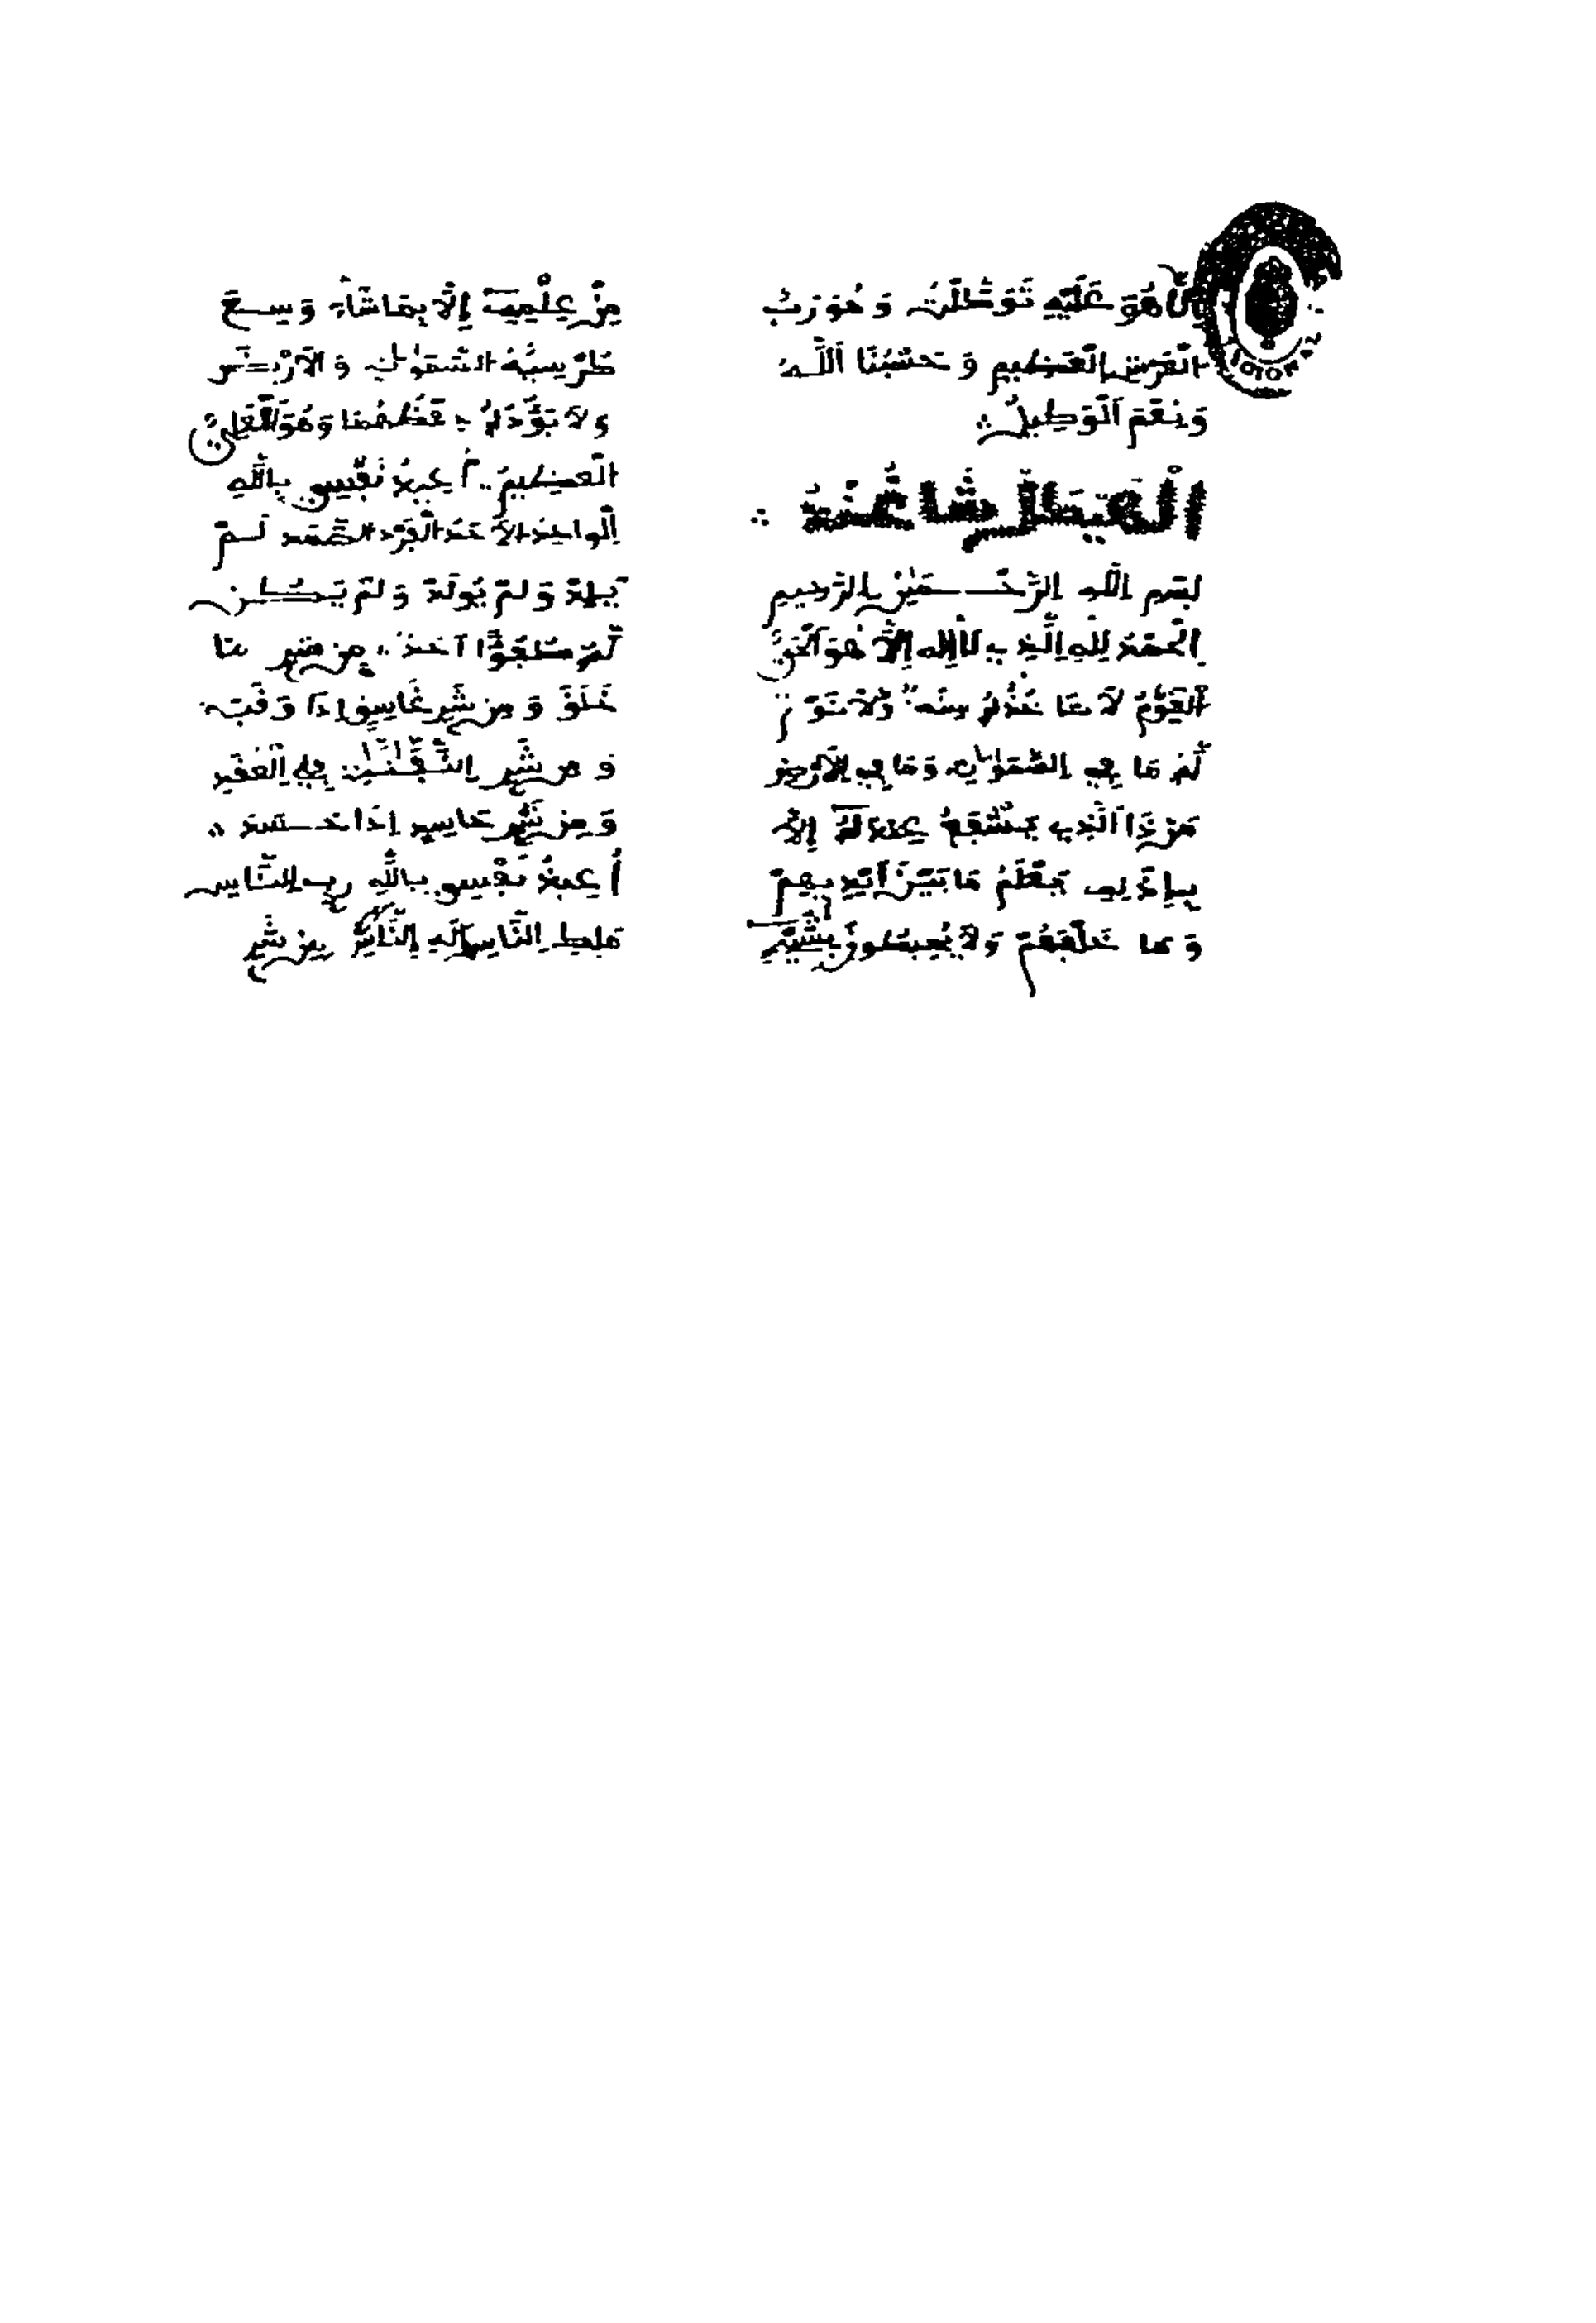 إِلَّا هُوَ عَلَيْهِ تَوَكَّلْتُ وَهُوَ رَبُّ
الْعَرْشِ الْعَظِيمِ وَحَسْبُنَا اللَّهُ
وَنِعْمَ الْوَكِيلُ
بِسْمِ اللَّهِ الرَّحْمَٰنِ الرَّحِيمِ
الْحَمْدُ لِلَّهِ الَّذِي لَا إِلَٰهَ إِلَّا هُوَ الْحَيُّ
الْقَيُّومُ لَا تَاخُذُهُ سِنَةٌ وَلَا نَوْمٌ
لَهُ مَا فِي السَّمَٰوَاتِ وَمَا فِي الْأَرْضِ
مَن ذَا الَّذِي يَشْفَعُ عِندَهُ إِلَّا
بِإِذْنِهِ يَعْلَمُ مَا بَيْنَ أَيْدِيهِمْ
وَمَا خَلْفَهُمْ وَلَا يُحِيطُونَ بِشَيْءٍ
مِنْ عِلْمِهِ إِلَّا بِمَا شَاءَ وَسِعَ
كُرْسِيُّهُ السَّمَٰوَاتِ وَالْأَرْضَ
وَلَا يَؤُدُهُ حِفْظُهُمَا وَهُوَ الْعَلِيُّ
الْعَظِيمُ أُعِيذُ نَفْسِي بِاللَّهِ
الْوَاحِدِ الْأَحَدِ الْفَرْدِ الصَّمَدِ لَمْ
يَلِدْ وَلَمْ يُولَدْ وَلَمْ يَكُن
لَهُ كُفُوًا أَحَدٌ مِن شَرِّ مَا
خَلَقَ وَمِن شَرِّ غَاسِقٍ إِذَا وَقَبَ
وَمِن شَرِّ النَّفَّٰثَٰتِ فِي الْعُقَدِ
وَمِن شَرِّ حَاسِدٍ إِذَا حَسَدَ
أُعِيذُ نَفْسِي بِاللَّهِ رَبِّ النَّاسِ
مَلِكِ النَّاسِ إِلَٰهِ النَّاسِ مِن شَرِّ